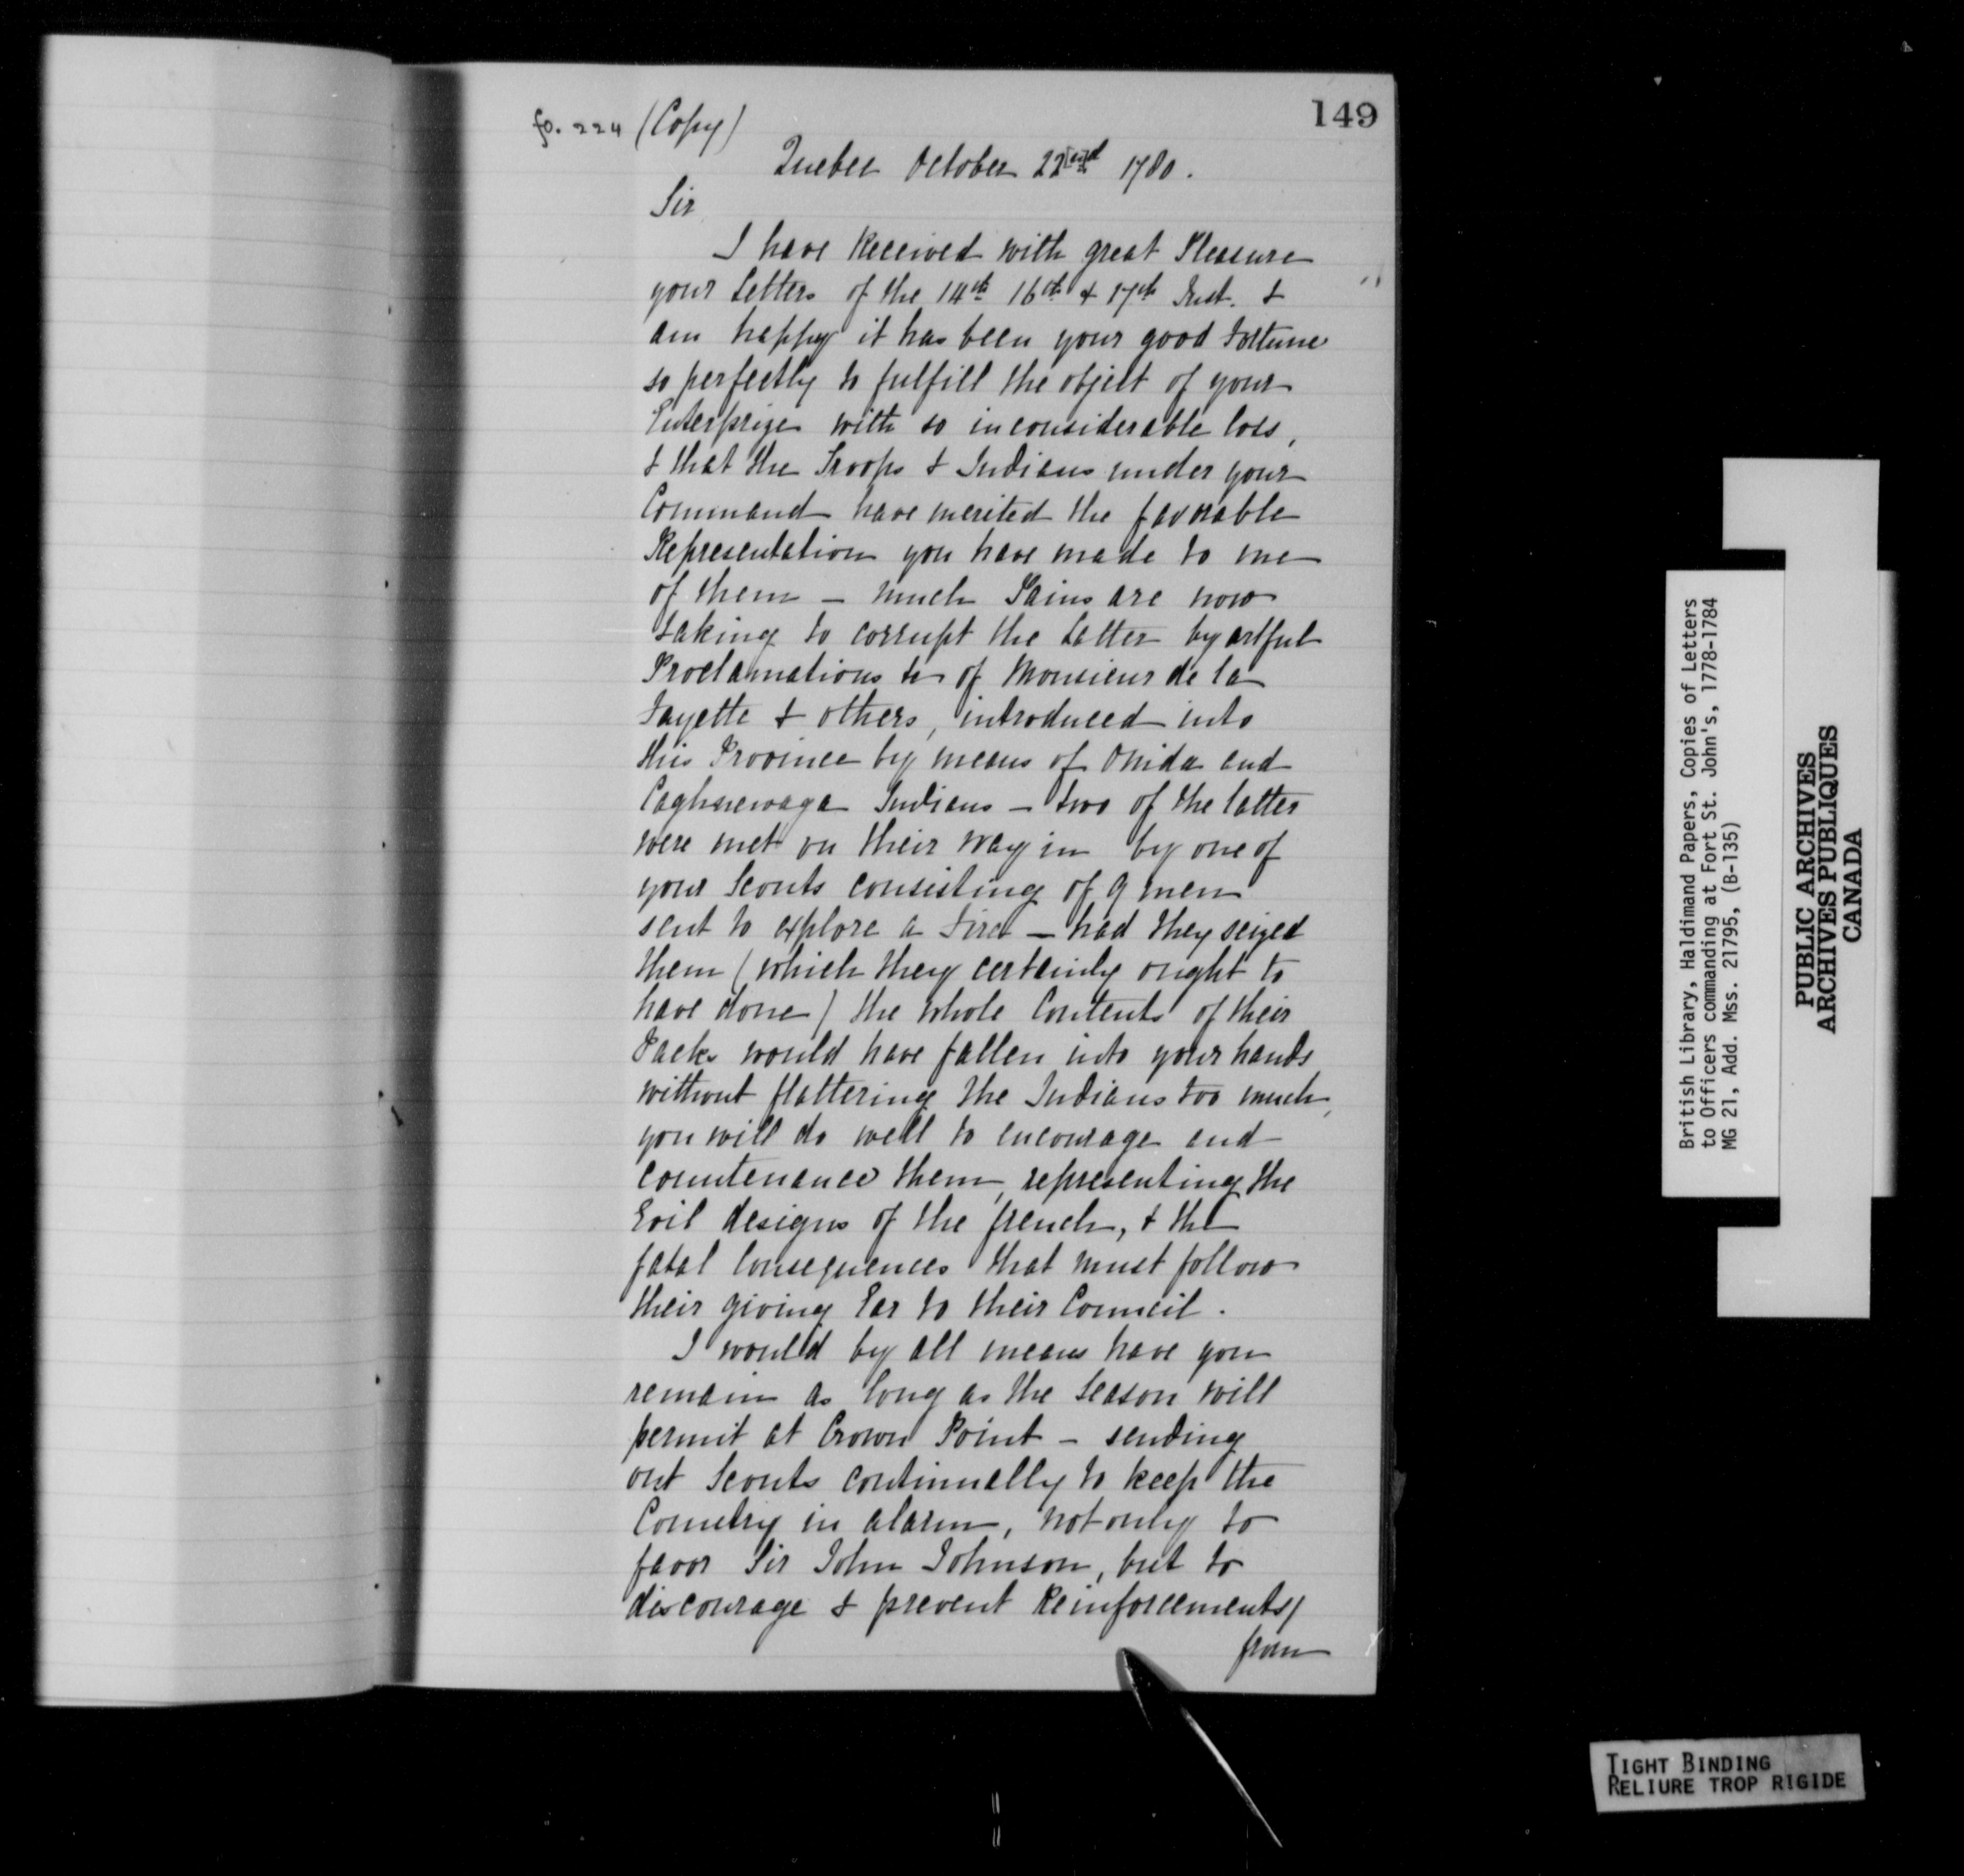 149
fo. 224 (Copy)
Quebec October 22nd 1780.
Sir
I have Received with great Pleasure
your Letters of the 14th 16th & 17th Inst. &
am happy it has been your good Fortune
so perfectly to fulfill the object of your
Enterprize with so inconsiderable loss,
& that the Troops & Indians under your
Command have merited the favorable
Representation you have made to me
of them – much Pains are now
taking to corrupt the Latter by artful
Proclamations &c of Monsieur de la
Fayette & others, introduced into
this Province by means of Onida and
Caghnewaga Indians – two of the latter
were met on their way in by one of
your Scouts consisting of 9 men
sent to explore a Fire – had they seized
them (which they certainly ought to
have done) the whole Contents of their
Packs would have fallen into your hands
without flattering the Indians too much,
you will do well to encourage and
countenance them, representing the
Evil designs of the french, & the
fatal Consequences that must follow
their giving Ear to their Council.
I would by all means have you
remain as long as the Season will
permit at Crown Point – sending
out Scouts continually to keep the
Country in alarm, not only to
favor Sir John Johnson, but to
discourage & prevent Reinforcements/
from
British Library, Haldimand Papers, Copies of Letters
to Officers commanding at Fort St. John's, 1778-1784
MG 21, Add. Mss. 21795, (B-135)
PUBLIC ARCHIVES
ARCHIVES PUBLIQUES
CANADA
TIGHT BINDING
RELIURE TROP RIGIDE